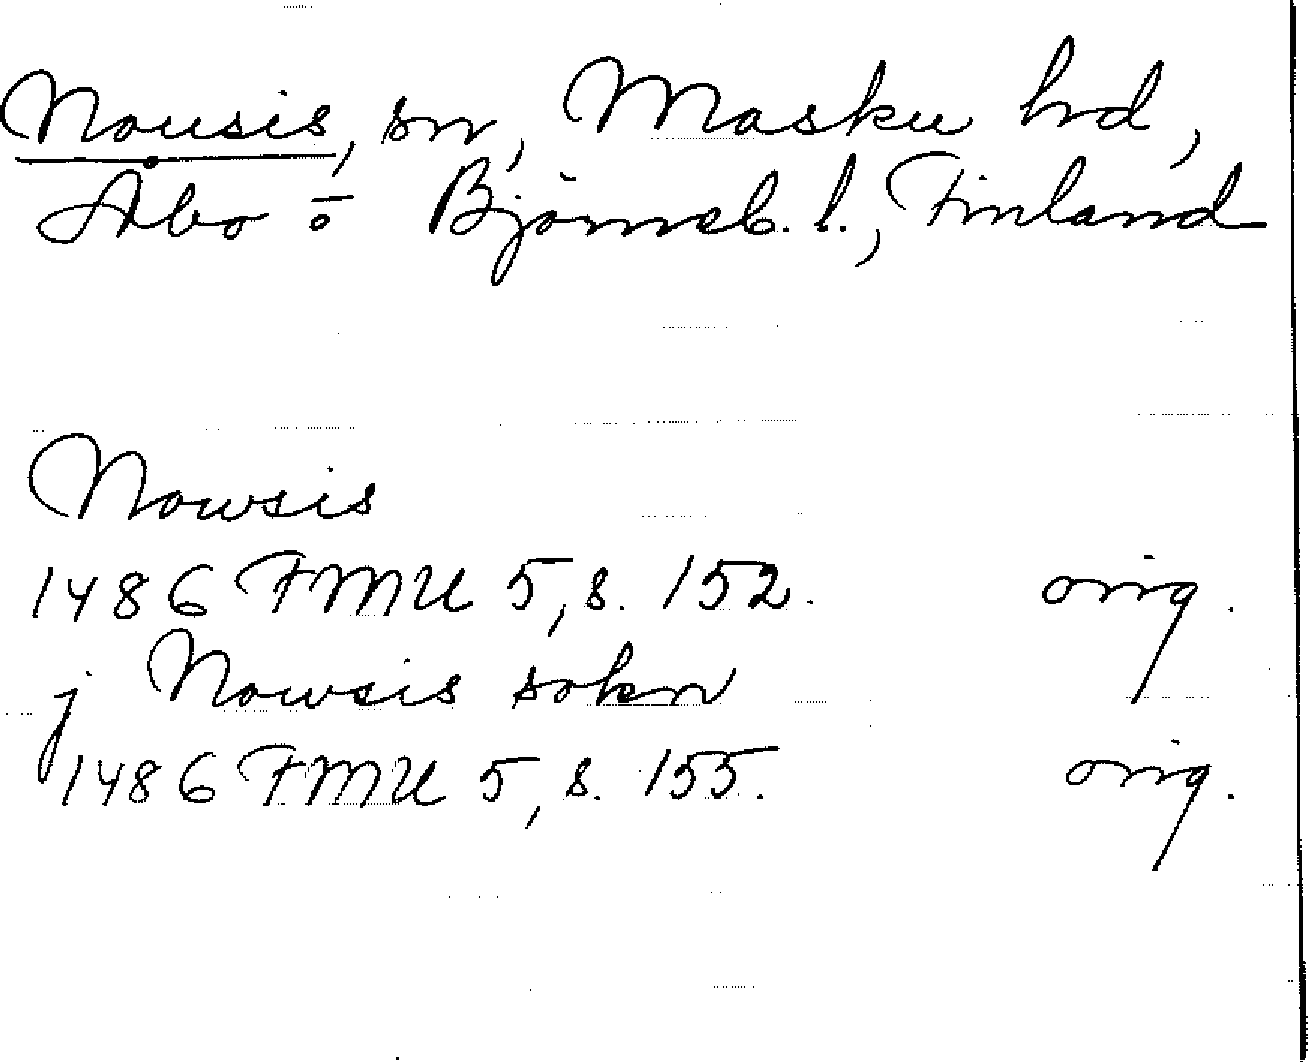 Nousis, sn, Masku hrd,
Åbo o Björneb. l., Finland
Nowsis
1486 FMU 5, s. 152. orig.
j Nowsis sokn
1486 FMU 5, s. 155. orig.